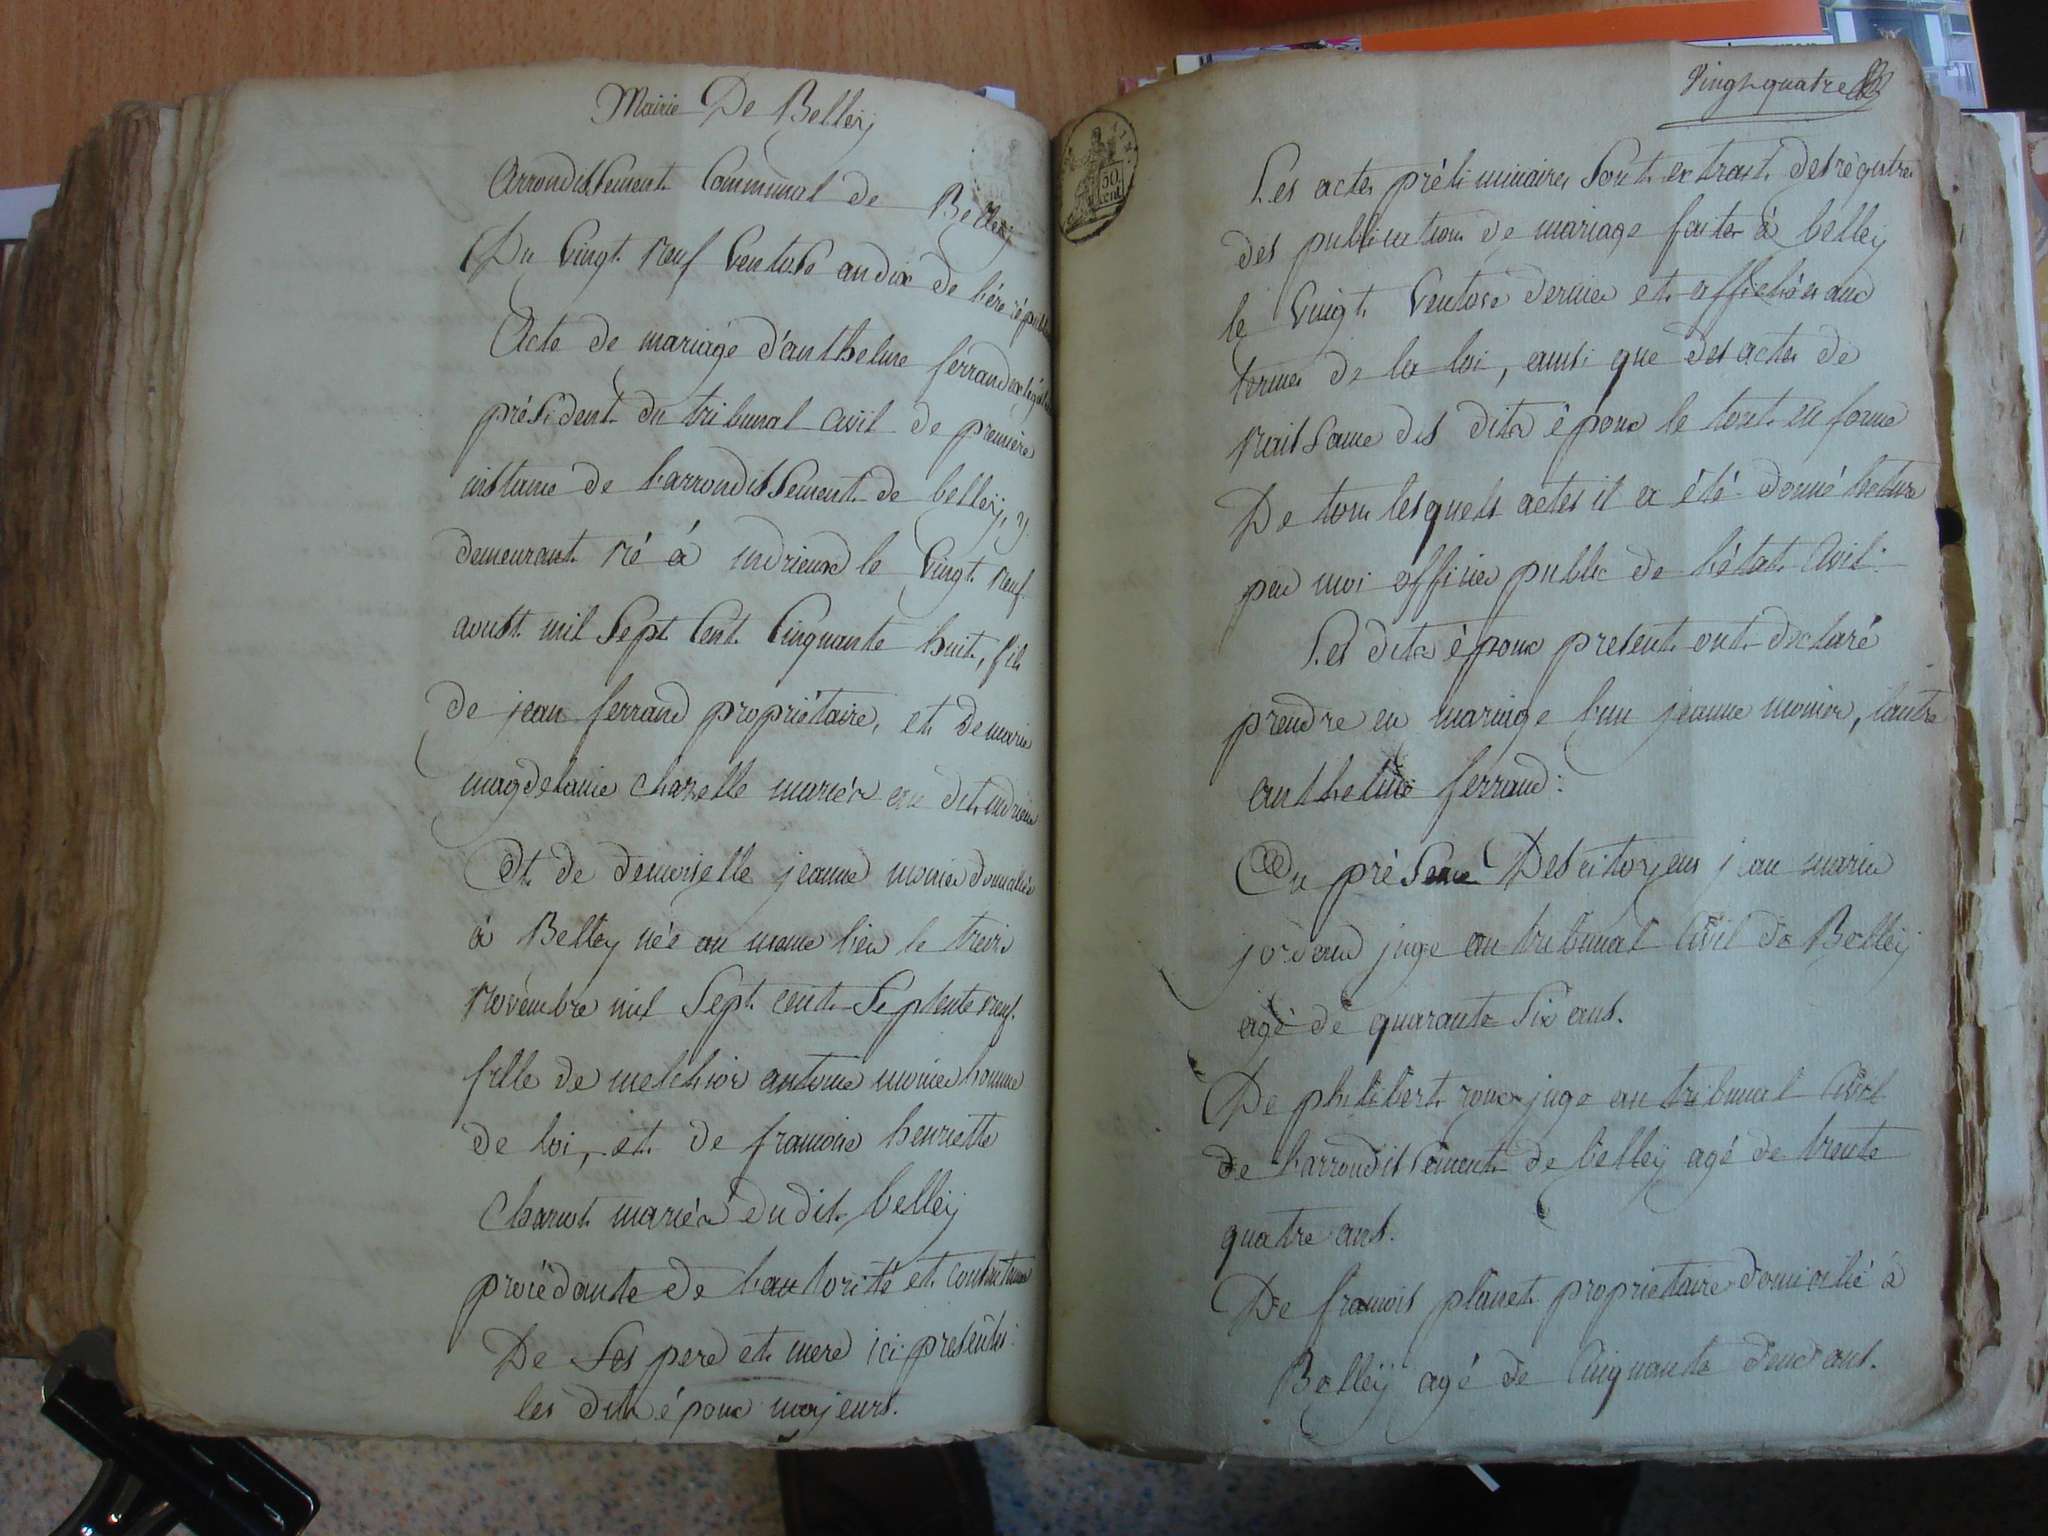 Mairie De Belleÿ
Arrondissement Communal de Belleÿ
Du vingt neuf ventose an dix de l'ère
Acte de mariage d'anthelme ferrand
président du tribunal civil de première
instance de l'arrondissement de belleÿ, y
demeurant né à indrieux le vingt neuf
aoust mil sept cent cinquante huit, fils
de jean ferrand propriétaire, et de marie
magdelaine chazelle mariés au dit indrieux
Et de demoiselle jeanne monier domiciliée
à Belley née au meme lieu le trois
novembre mil sept cent septente neuf
fille de melchior antoine monier homme
de loi, et de francoise henriette
mariés dudit belleÿ
procédante de l'autorité et
De ses pere et mere ici presents:
les dits époux majeurs.
Vingt quatre
50 cent
Les actes préliminaires sont extrait des régistres
des publications de mariage faites à belleÿ
le vingt ventose dernier et affichés aux
termes de la loi, ainsi que des actes de
naissance des dits époux le tout en forme
De tous lesquels actes il a été donné lecture
par moi officier public de l'état civil:
Les dits époux presents ont déclaré
prendre en mariage l'un jeanne monier, l'autre
anthelme ferrand:
En présence Des citoyens jean marie
jordan juge au tribunal civil de Belleÿ
agé de quarante six ans.
De philibert roux juge au tribunal civil
de l'arrondissement de belleÿ agé de trente
quatre ans.
De francois planet propriétaire domicilié à
Belleÿ agé de cinquante deux ans.